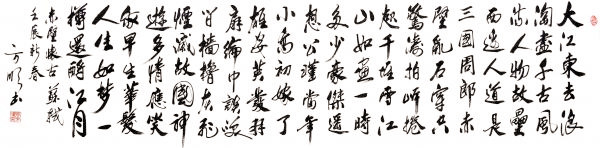 大江東去浪
淘盡千古風
流人物故壘
西邊人道是
三國周郎赤
壁亂石穿空
驚濤拍岸捲
起千堆雪江
山如畫一時
多少豪傑遙
想公瑾當年
小喬初嫁了
雄姿英發羽
扇綸巾談笑
間檣櫓灰飛
煙滅故國神
遊多情應笑
我早生華髮
人生如夢一
樽還酹江月
赤壁懷古 蘇軾
壬辰新春